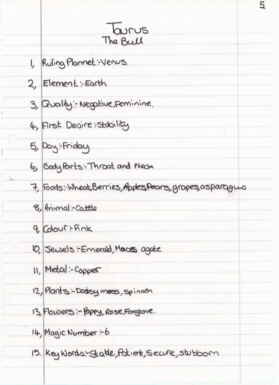 5
Taurus
The Bull
1, Ruling Plannet :- Venus.
2, Element :- Earth
3, Quality :- Negative, Feminine.
4, First Desire : Stability
5, Day :- Friday
6, Body Parts :- Throat and Neck
7, Foods : Wheat, Berries, Apples, Pears, grapes, asparagus
8, Animal :- Cattle
9, Colour :- Pink
10, Jewels :- Emerald, Moss agate
11, Metal :- Copper
12, Plants :- moss, Spinach
13, Flowers :- Poppy, Rose, Foxglove.
14, Magic Number :- 6
15, Key Words :- Stable, Patient, Secure, stubborn